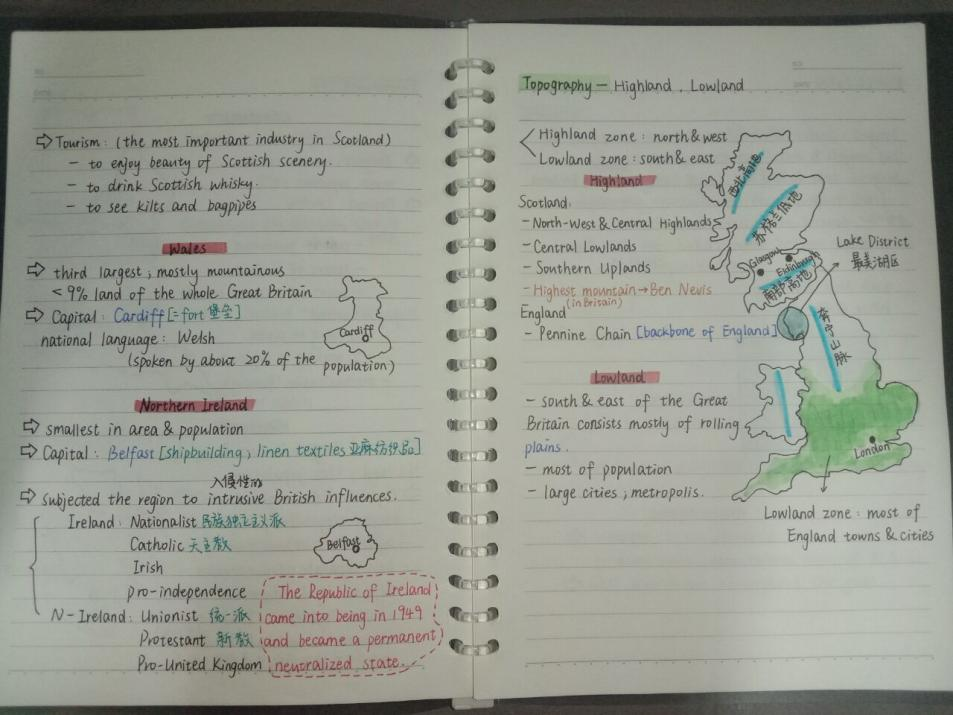 ⇨ Tourism: (the most important industry in Scotland)
- to enjoy beauty of Scottish scenery.
- to drink Scottish whisky.
- to see kilts and bagpipes
Wales
⇨ third largest; mostly mountainous
< 9% land of the whole Great Britain
⇨ Capital: Cardiff [= fort 堡垒]
national language: Welsh
(spoken by about 20% of the population)
Cardiff
Northern Ireland
⇨ smallest in area & population
⇨ Capital: Belfast [shipbuilding; linen textiles 亚麻纺织品]
入侵性的
⇨ subjected the region to intrusive British influences.
Ireland: Nationalist 民族独立主义派
Catholic 天主教
Irish
pro-independence
N-Ireland: Unionist 统一派
Protestant 新教
Pro-United Kingdom
Belfast
The Republic of Ireland
came into being in 1949
and became a permanent
neutralized state.
Topography — Highland. Lowland
Highland zone: north & west
Lowland zone: south & east
Highland
Scotland:
- North-West & Central Highlands
- Central Lowlands
- Southern Uplands
- Highest mountain → Ben Nevis
(in Britain)
England
- Pennine Chain [backbone of England]
Lowland
- south & east of the Great
Britain consists mostly of rolling
plains.
- most of population
- large cities; metropolis.
西北高地
苏格兰低地
Glasgow
Edinburgh
南部高地
Lake District
最美湖区
奔宁山脉
London
Lowland zone: most of
England towns & cities